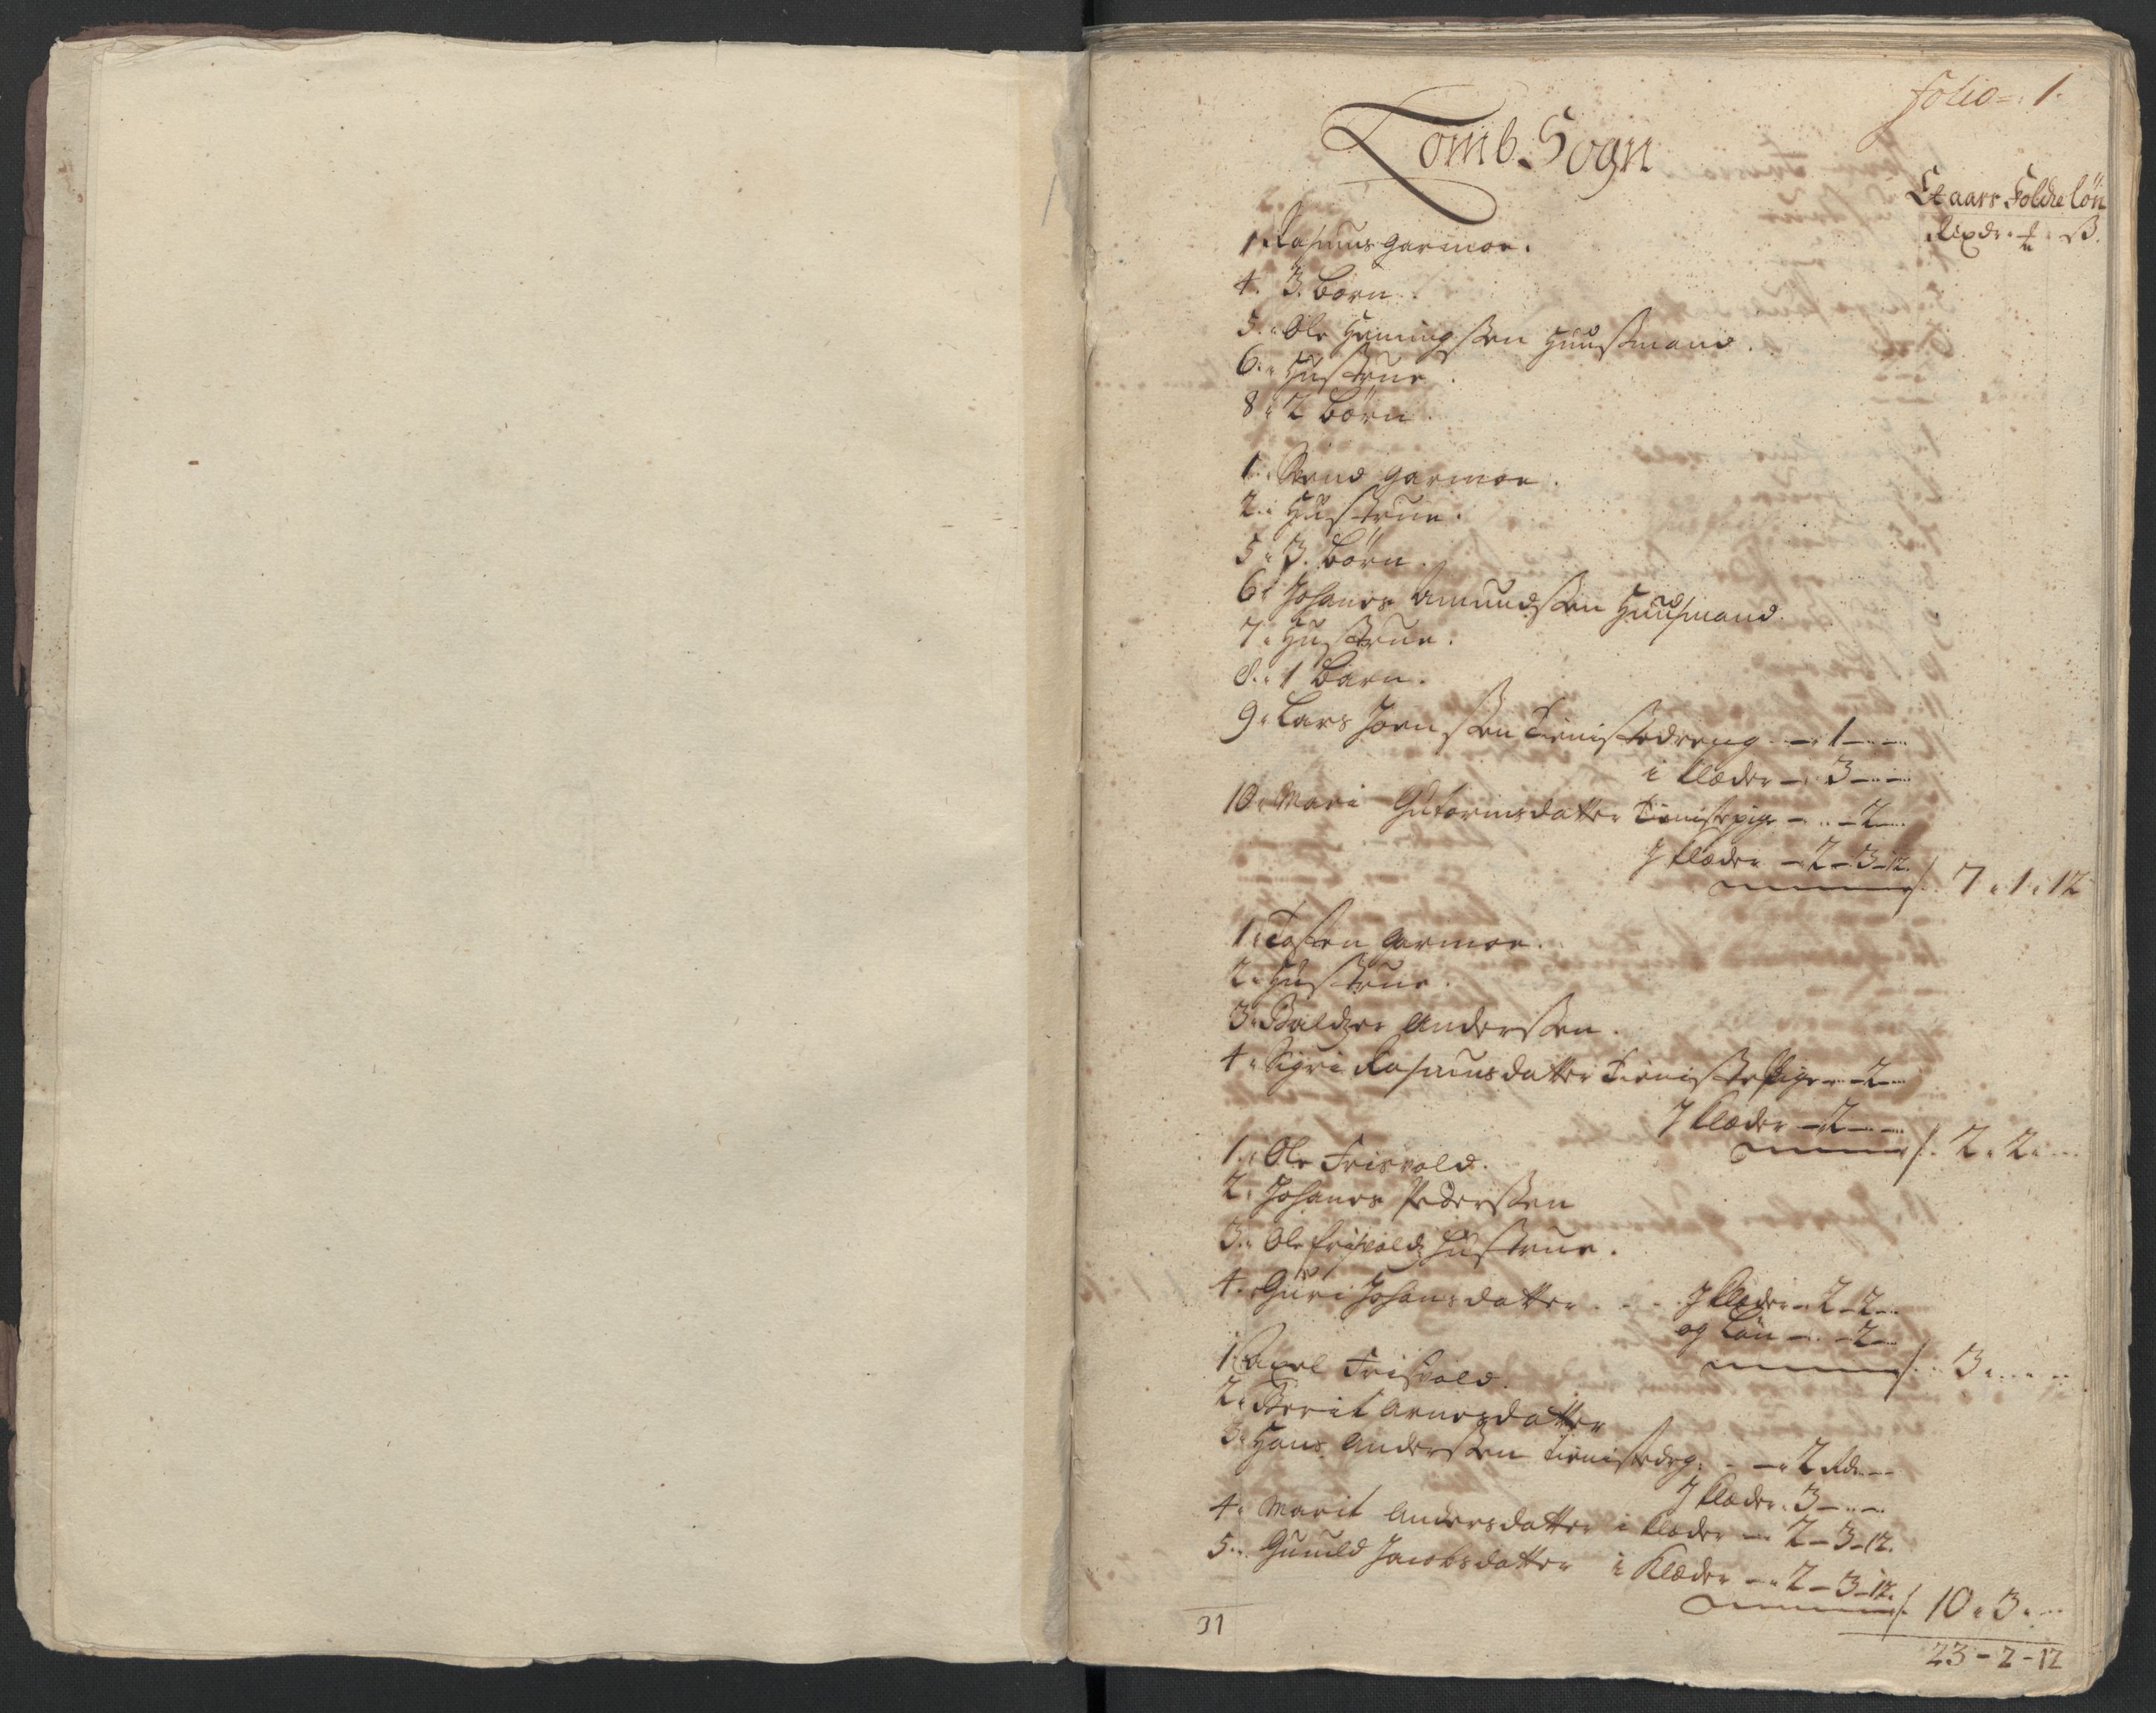 folio = 1.
Lomb. Sogn
Et aars Folche løn
Rixdr. ₰. ß.
1 Rasmus garmoe.
4. 3. børn.
5. Ole Hemingsen Huusmand.
6. Hustrue.
8. 2 børn
1. Svend garmoe.
2. Hustrue.
5. 3. børn.
6. Johanes Amundsen Huusmand.
7. Hustrue.
8. 1 Barn.
9. Lars Joensen Tienistedreng — 1 —
i klæder — 3 —
10. Mari Gutormsdatter Tienistepige — 2 —
J klæder — 2 — 3 — 12.
/. 7. 1. 12
1. Tosten Garmoe.
2. Hustrue.
3. Baldzer Andersen.
4. Sigri Rasmusdatter Tieniste Pige — 2 —
J klæder — 2 —
/. 2. 2.
1. Ole Frisvold.
2. Johanes Pedersen
3. Ole frisvolds Hustrue.
4. Guri Johansdatter . . . J klæder — 2 — 2 —
og Løn — 2 —
/. 3.
1. Axel Frisvold.
2. Berit Arnesdatter
3. Hans Andersen Tienistedrg: — 2 Rdr —
J klæder. 3 —
4. Marit Andersdatter i klæder — 2 — 3 — 12.
5. Gunild Jacobsdatter i Klæder — 2 — 3 — 12.
/. 10. 3.
31
23 - 2 - 12